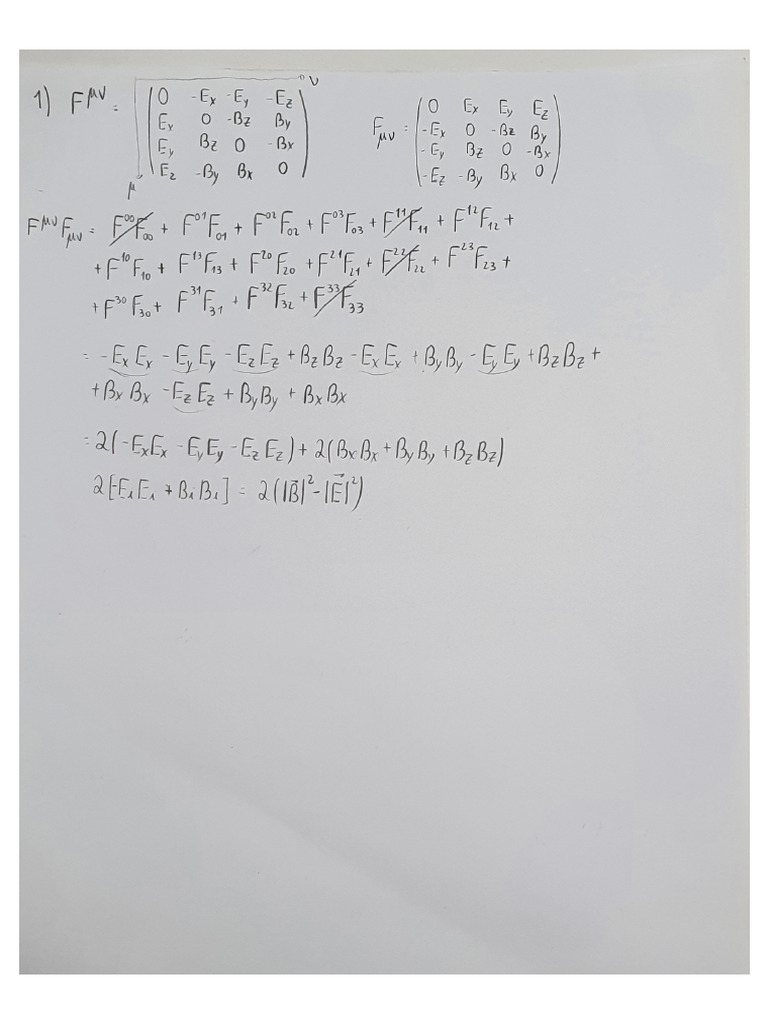 1) F^{μν} = ( 0 -E_x -E_y -E_z ) ν F_{μν} = ( 0 E_x E_y E_z )
( E_x 0 -B_z B_y ) ( -E_x 0 -B_z B_y )
( E_y B_z 0 -B_x ) ( -E_y B_z 0 -B_x )
μ ( E_z -B_y B_x 0 ) ( -E_z -B_y B_x 0 )
F^{μν}F_{μν} = F^{00}F_{00} + F^{01}F_{01} + F^{02}F_{02} + F^{03}F_{03} + F^{11}F_{11} + F^{12}F_{12} +
+ F^{10}F_{10} + F^{13}F_{13} + F^{20}F_{20} + F^{21}F_{21} + F^{22}F_{22} + F^{23}F_{23} +
+ F^{30}F_{30} + F^{31}F_{31} + F^{32}F_{32} + F^{33}F_{33}
= -E_x E_x - E_y E_y - E_z E_z + B_z B_z - E_x E_x + B_y B_y - E_y E_y + B_z B_z +
+ B_x B_x - E_z E_z + B_y B_y + B_x B_x
= 2(-E_x E_x - E_y E_y - E_z E_z) + 2(B_x B_x + B_y B_y + B_z B_z)
2[-E_i E_i + B_i B_i] = 2(|B⃗|² - |E⃗|²)